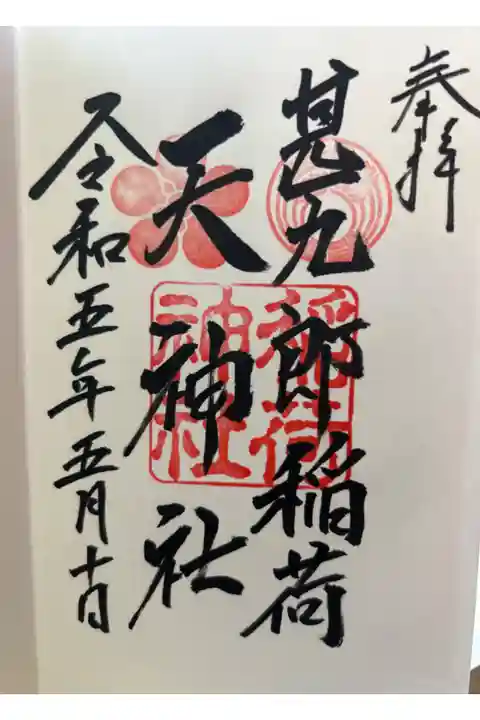 奉拝
甚九郎稲荷
天神社
令和五年五月十日
稲荷
神社